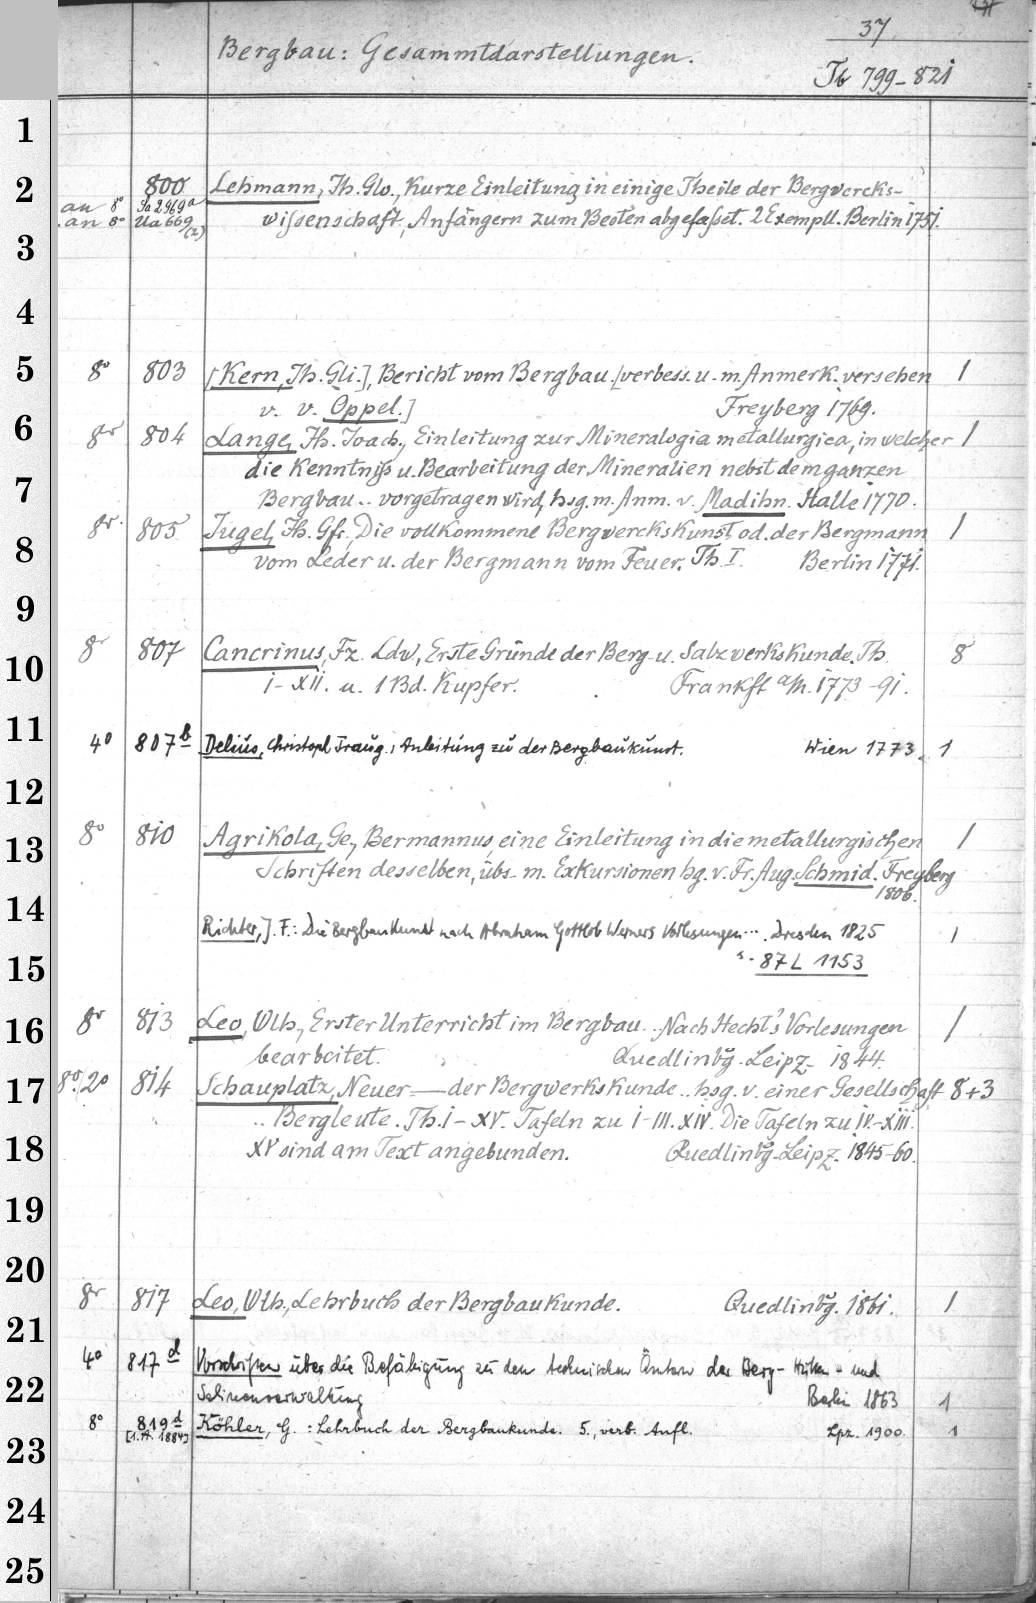 37
Bergbau: Gesammtdarstellungen.
Tb 799-821
1
2 800 Lehmann, Jh. Glo., Kurze Einleitung in einige Theile der Bergwercks-
an 8° Sa 2969a
an 8° Ua 669(2) wissenschaft, Anfängern zum Besten abgefasset. 2 Exempll. Berlin 1751.
3
4
5 8° 803 [Kern, Jh. Gli.], Bericht vom Bergbau. [verbess. u. m. Anmerk. versehen 1
v. v. Oppel.] Freyberg 1769.
6 8r 804 Lange, Jh. Joach., Einleitung zur Mineralogia metallurgica, in welcher 1
die Kenntniss u. Bearbeitung der Mineralien nebst dem ganzen
7 Bergbau .. vorgetragen wird, hsg. m. Anm. v. Madihn. Halle 1770.
8r. 805 Jugel, Jh. Gfr., Die vollkommene Bergwerckskunst od. der Bergmann 1
8 vom Leder u. der Bergmann vom Feuer. Th. I. Berlin 1771.
9
8r 807 Cancrinus, Fz. Ldw., Erste Gründe der Berg- u. Salzwerkskunde. Th. 8
10 I-XII. u. 1 Bd. Kupfer. Frankft a/M. 1773-91.
11 4° 807b Delius, Christoph Traug.: Anleitung zu der Bergbaukunst. Wien 1773. 1
12
13 8° 810 Agrikola, Ge., Bermannus, eine Einleitung in die metallurgischen 1
Schriften desselben, übs. m. Exkursionen hg. v. Fr. Aug. Schmid. Freyberg
1806.
14
Richter, J. F.: Die Bergbaukunst nach Abraham Gottlob Werners Vorlesungen .... Dresden 1825 1
15 s. 87 L 1153
16 8r 813 Leo, Wlh., Erster Unterricht im Bergbau. .. Nach Hecht's Vorlesungen 1
bearbeitet. Quedlinbg.-Leipz. 1844.
17 8°/2° 814 Schauplatz, Neuer — der Bergwerkskunde .. hsg. v. einer Gesellschaft 8+3
.. Bergleute. Th. I-XV. Tafeln zu I-III. XIV. Die Tafeln zu IV.-XIII.
18 XV sind am Text angebunden. Quedlinbg.-Leipz. 1845-60.
19
20
8r 817 Leo, Wlh., Lehrbuch der Bergbaukunde. Quedlinbg. 1861. 1
21
4° 817d Vorschriften über die Befähigung zu den technischen Ämtern der Berg- Hütten- und
22 Salinenverwaltung Berlin 1863 1
8° 819d Köhler, G.: Lehrbuch der Bergbaukunde. 5., verb. Aufl. Lpz. 1900. 1
[1. A. 1884]
23
24
25